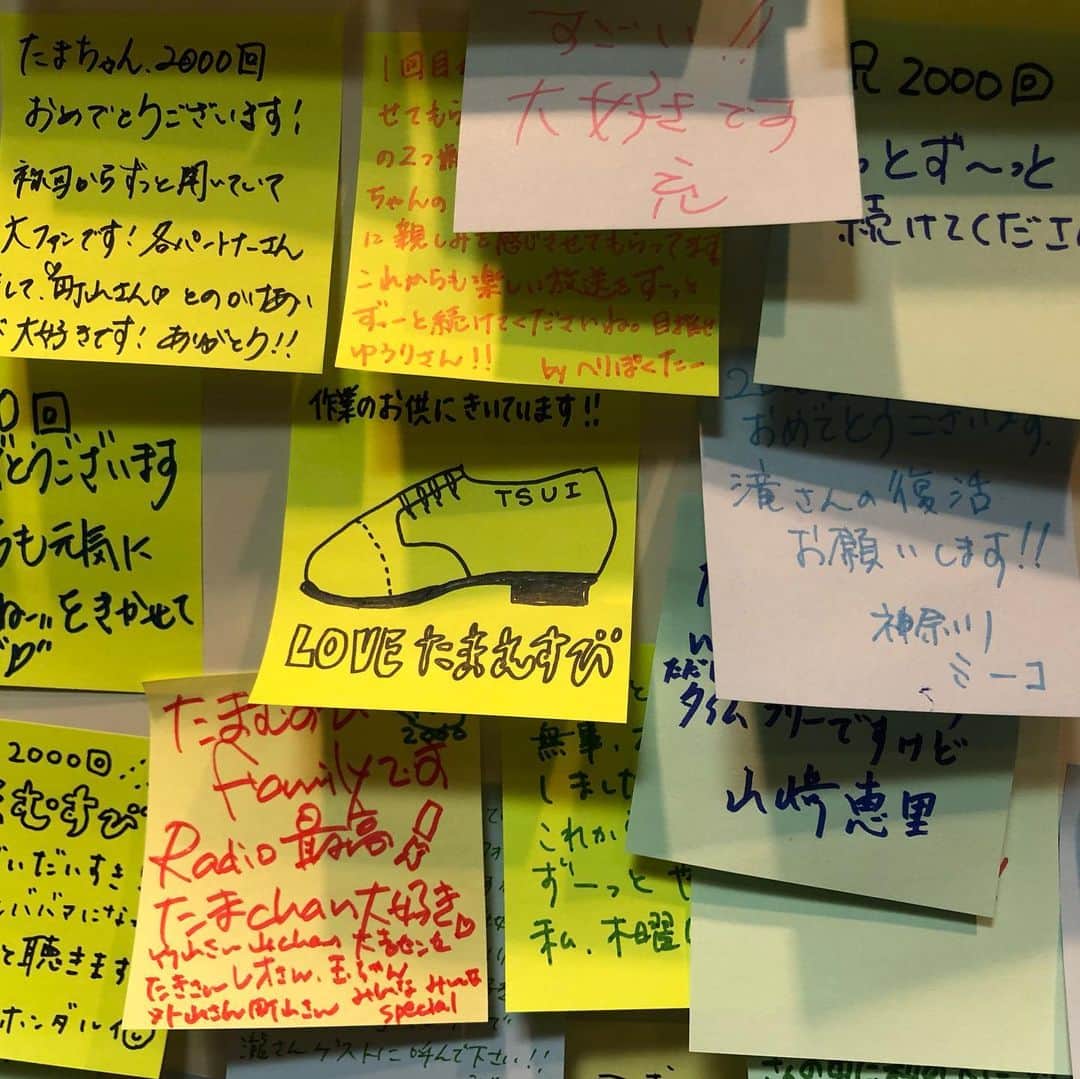 たまちゃん、2000回
おめでとうございます!
初回からずっと聞いていて
大ファンです!各パートナーさん
して、町山さん♡とのかけあい
大好きです!ありがとう!!
1回目
せてもら
の2つ
ちゃんの
に親しみを感じさせてもらってます
これからも楽しい放送をずーっと
ずーっと続けてくださいね。目指せ
ゆうりさん!!
by へりぽくたー
すごい!!
大好きです
祝2000回
っとず〜っと
続けてくださ
0回
とうございます
も元気に
をきかせて
作業のお供にきいています!!
TSUI
LOVE たまむすび
おめでとうございます.
滝さんの復活
お願いします!!
神奈川
ミーコ
タイムフリーですけど
山崎恵里
2000回
むすび
だいすき
ババアにな
と聴きます
ホンダル
2000
familyです
Radio最高!
たまchan大好き♡
たきさん
玉ちゃん
外山さん 町山さん
みんな みんな
special
無事、
しました
これか
ずーっと
私、木曜
滝さんゲストに呼んで下さい!!